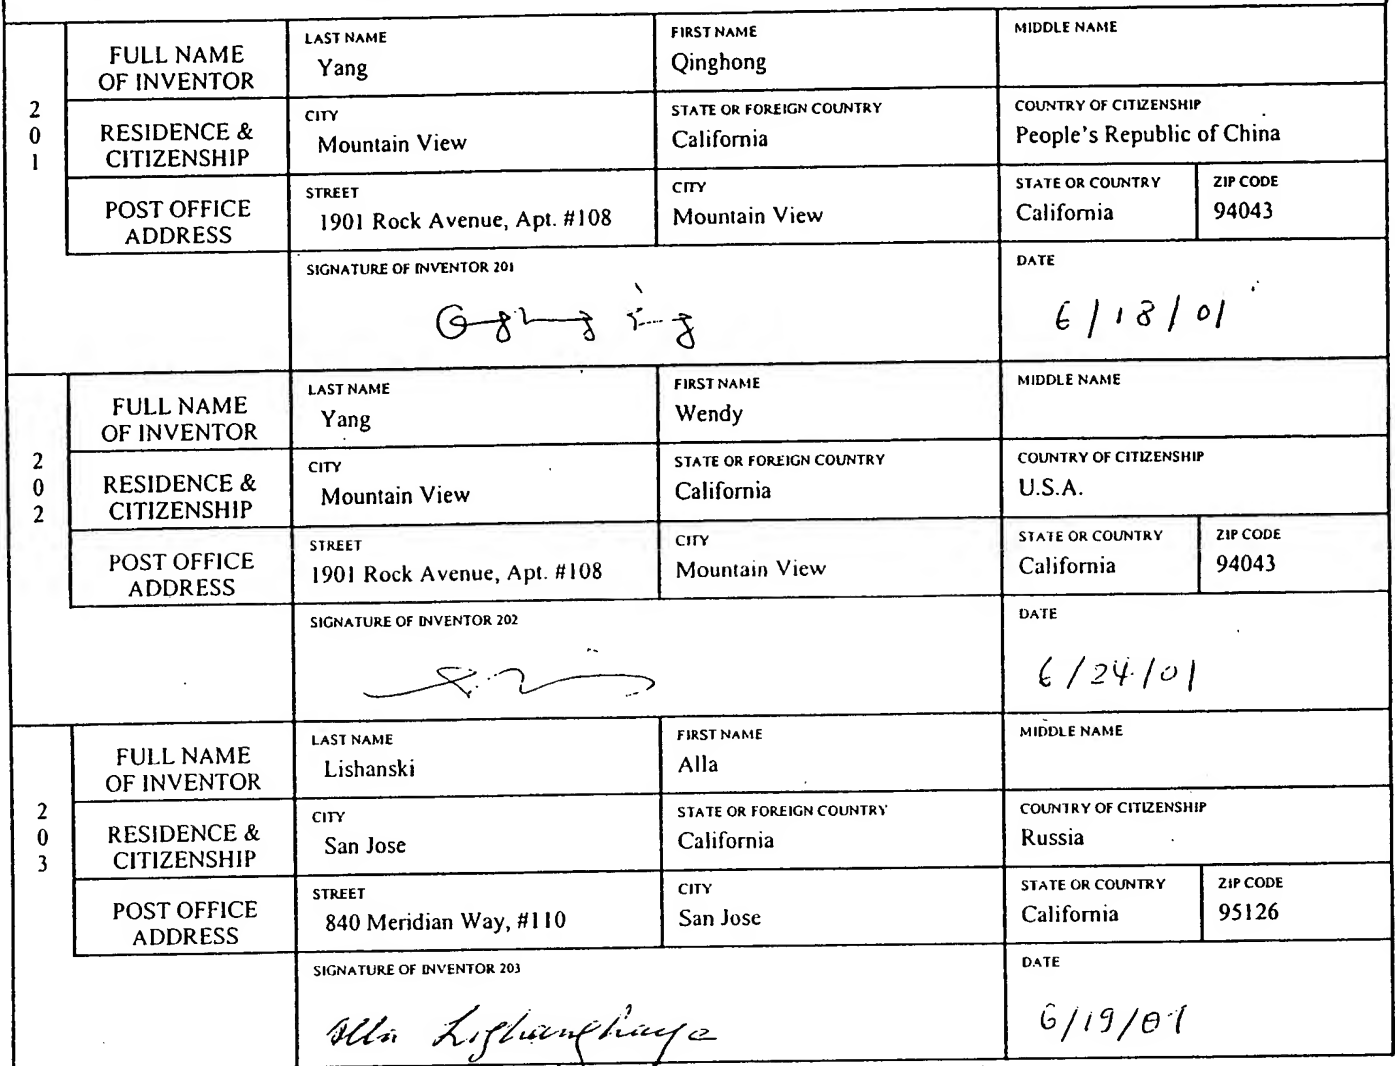 2
0
1
FULL NAME
OF INVENTOR
LAST NAME
Yang
FIRST NAME
Qinghong
MIDDLE NAME
RESIDENCE &
CITIZENSHIP
CITY
Mountain View
STATE OR FOREIGN COUNTRY
California
COUNTRY OF CITIZENSHIP
People's Republic of China
POST OFFICE
ADDRESS
STREET
1901 Rock Avenue, Apt. #108
CITY
Mountain View
STATE OR COUNTRY
California
ZIP CODE
94043
SIGNATURE OF INVENTOR 201
DATE
6/18/01
2
0
2
FULL NAME
OF INVENTOR
LAST NAME
Yang
FIRST NAME
Wendy
MIDDLE NAME
RESIDENCE &
CITIZENSHIP
CITY
Mountain View
STATE OR FOREIGN COUNTRY
California
COUNTRY OF CITIZENSHIP
U.S.A.
POST OFFICE
ADDRESS
STREET
1901 Rock Avenue, Apt. #108
CITY
Mountain View
STATE OR COUNTRY
California
ZIP CODE
94043
SIGNATURE OF INVENTOR 202
DATE
6/24/01
2
0
3
FULL NAME
OF INVENTOR
LAST NAME
Lishanski
FIRST NAME
Alla
MIDDLE NAME
RESIDENCE &
CITIZENSHIP
CITY
San Jose
STATE OR FOREIGN COUNTRY
California
COUNTRY OF CITIZENSHIP
Russia
POST OFFICE
ADDRESS
STREET
840 Meridian Way, #110
CITY
San Jose
STATE OR COUNTRY
California
ZIP CODE
95126
SIGNATURE OF INVENTOR 203
Alla
DATE
6/19/01